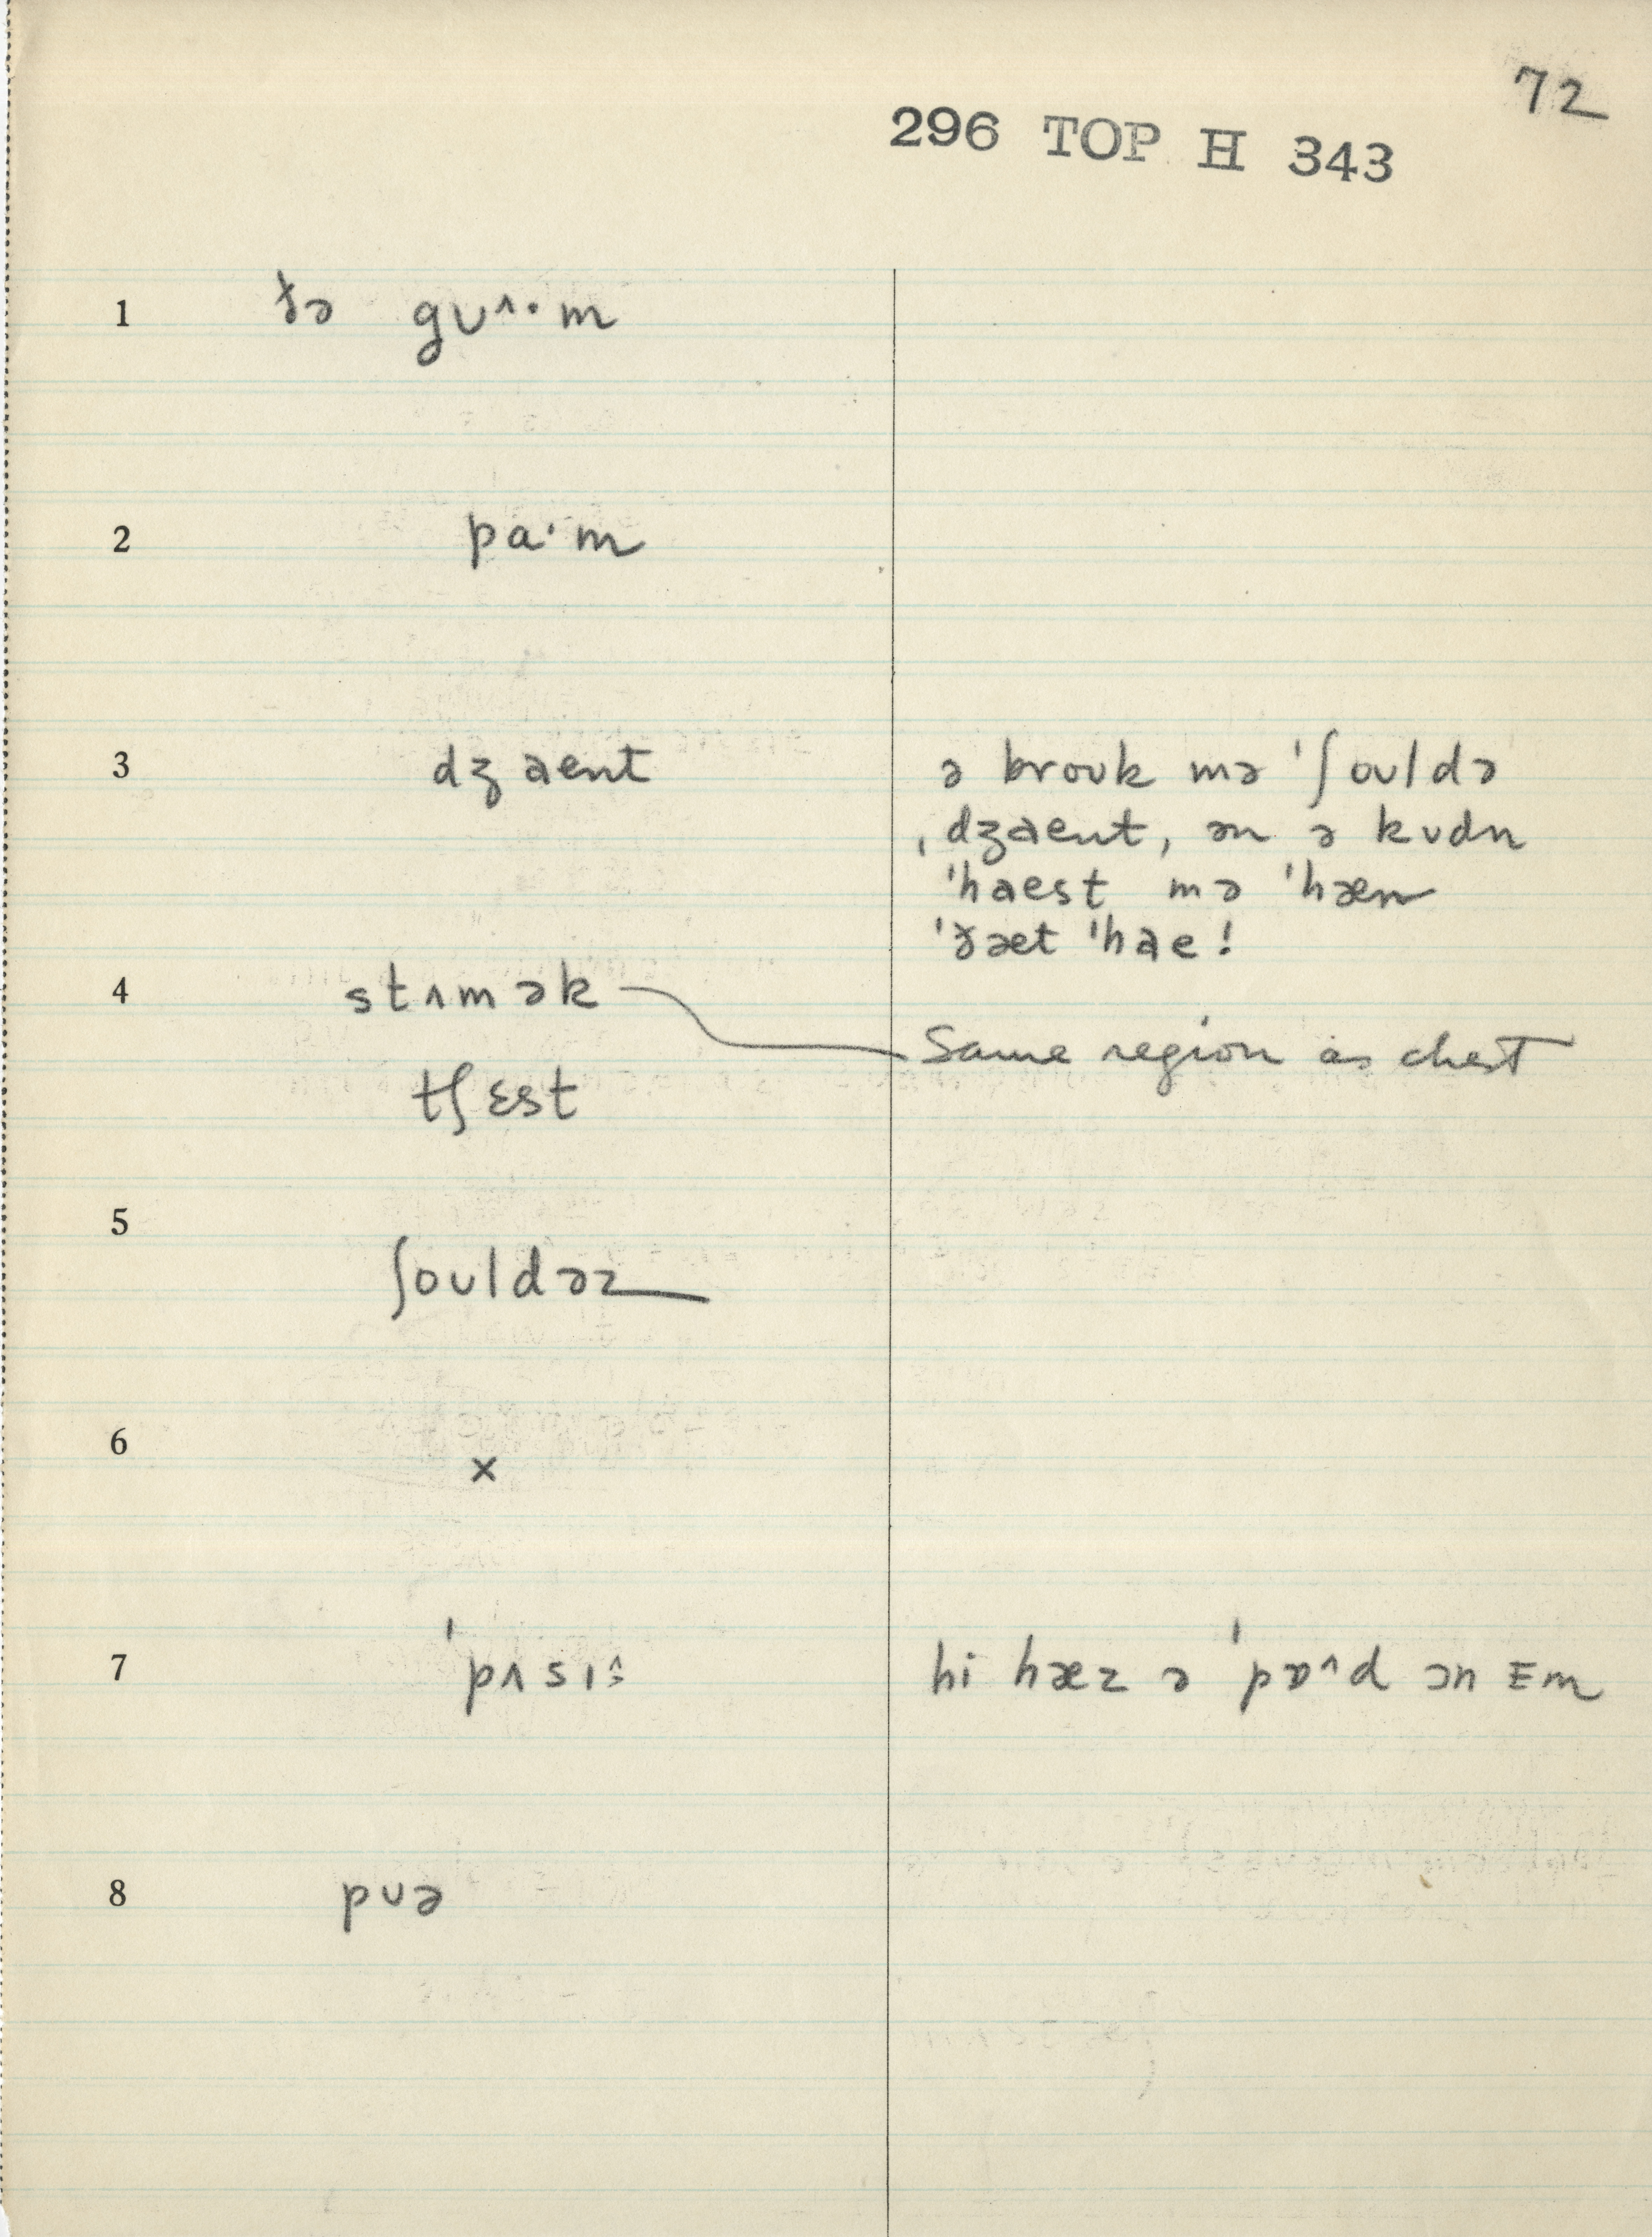 72
296 TOP H 343
1 ðə gʊ^·m
2 pa·m
3 dʒaent ə broʊk mə 'ʃoʊldə
ˌdʒaent, ən ə kʊdn
'haest mə 'hæn
'ðæt 'hae!
4 stʌmək Same region as chest
tʃɛst
5 ʃoʊldəz
6 x
7 'pʌsɪ^: hi hæz ə 'pɒ^d ɔn ɪm
8 pʊə